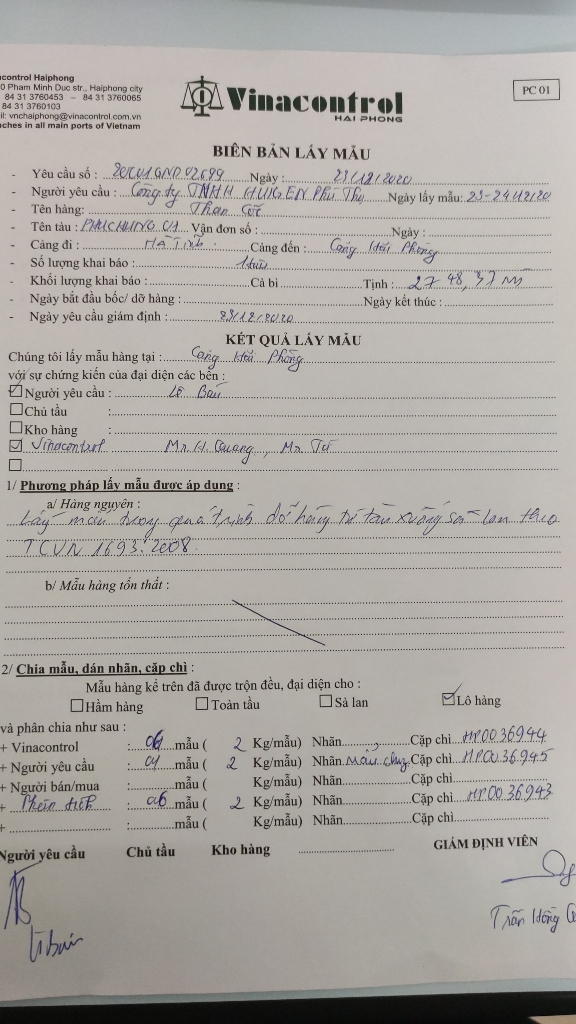 control Haiphong
0 Pham Minh Duc str., Haiphong city
84 31 3760453 – 84 31 3760065
84 31 3760103
il: vnchaiphong@vinacontrol.com.vn
nches in all main ports of Vietnam
Vinacontrol
HAI PHONG
PC 01
BIÊN BẢN LẤY MẪU
- Yêu cầu số : 20C01GND02699 Ngày : 23/12/2020
- Người yêu cầu : Công ty TNHH Phú Thọ Ngày lấy mẫu: 23-24/12/20
- Tên hàng: Than Cốc
- Tên tàu : PHUCHUNG 01 Vận đơn số : Ngày :
- Cảng đi : HÀ Tĩnh Cảng đến : Cảng Hải Phòng
- Số lượng khai báo : 1 tàu
- Khối lượng khai báo : Cả bì : Tịnh : 2748,37 mt
- Ngày bắt đầu bốc/ dỡ hàng : Ngày kết thúc :
- Ngày yêu cầu giám định : 23/12/2020
KẾT QUẢ LẤY MẪU
Chúng tôi lấy mẫu hàng tại : Cảng Hải Phòng
với sự chứng kiến của đại diện các bên :
Người yêu cầu : Lê
Chủ tầu :
Kho hàng :
Vinacontrol Mr. H. Quang, Mr. Tú
1/ Phương pháp lấy mẫu được áp dụng :
a/ Hàng nguyên :
Lấy mẫu trong quá trình dỡ hàng từ tàu xuống sà lan theo
TCVN 1693:2008.
b/ Mẫu hàng tổn thất :
2/ Chia mẫu, dán nhãn, cặp chì :
Mẫu hàng kể trên đã được trộn đều, đại diện cho :
Hầm hàng Toàn tầu Sà lan Lô hàng
và phân chia như sau :
+ Vinacontrol : mẫu ( 2 Kg/mẫu) Nhãn Cặp chì HP0036944
+ Người yêu cầu : 01 mẫu ( 2 Kg/mẫu) Nhãn Mẫu chung Cặp chì HP0036945
+ Người bán/mua : mẫu ( Kg/mẫu) Nhãn Cặp chì
+ : 06 mẫu ( 2 Kg/mẫu) Nhãn Cặp chì HP0036943
+ : mẫu ( Kg/mẫu) Nhãn Cặp chì
Người yêu cầu Chủ tầu Kho hàng GIÁM ĐỊNH VIÊN
Trần Hồng